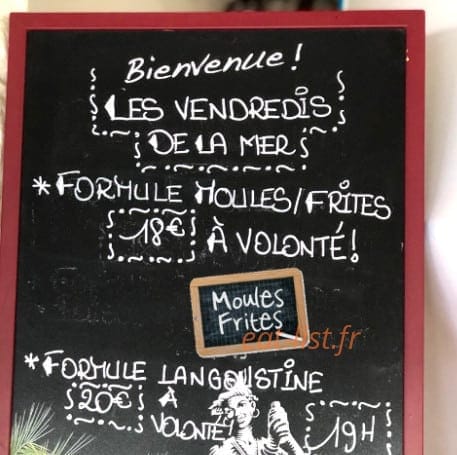 Bienvenue !
LES VENDREDIS
DE LA MER
* FORMULE MOULES/FRITES
18€ À VOLONTÉ !
Moules
Frites
eat-list.fr
* FORMULE LANGOUSTINE
20€ À
VOLONTÉ !
19H